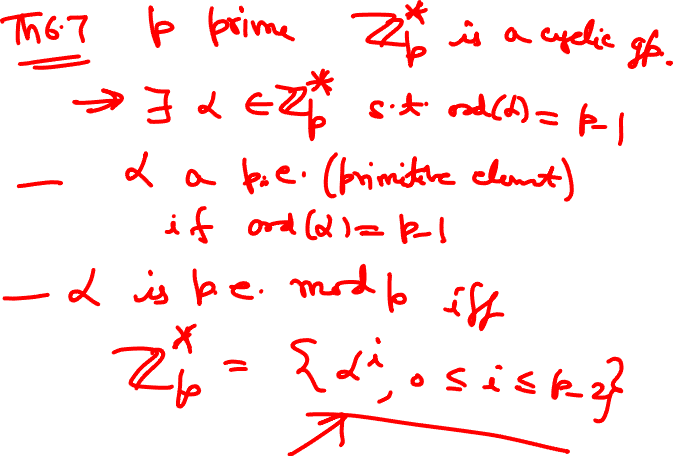 Th 6.7 p prime ℤ_p^* is a cyclic gp.
→ ∃ α ∈ ℤ_p^* s.t. ord(α) = p-1
— α a p.e. (primitive element)
if ord(α) = p-1
— α is p.e. mod p iff
ℤ_p^* = {α^i, 0 ≤ i ≤ p-2}